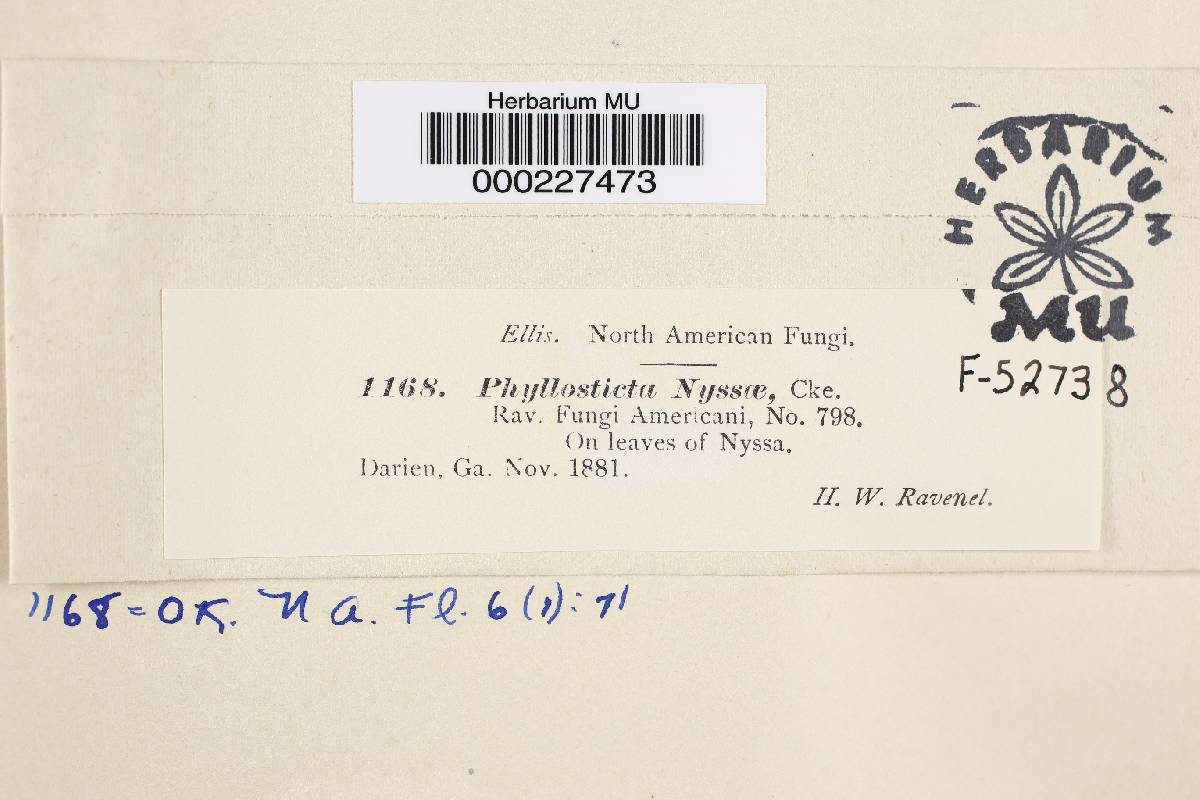 Herbarium MU
000227473
HERBARIUM
MU
F-52738
Ellis. North American Fungi.
1168. Phyllosticta Nyssæ, Cke.
Rav. Fungi Americani, No. 798.
On leaves of Nyssa.
Darien, Ga. Nov. 1881.
H. W. Ravenel.
1168 = OK. N a. Fl. 6 (1): 71